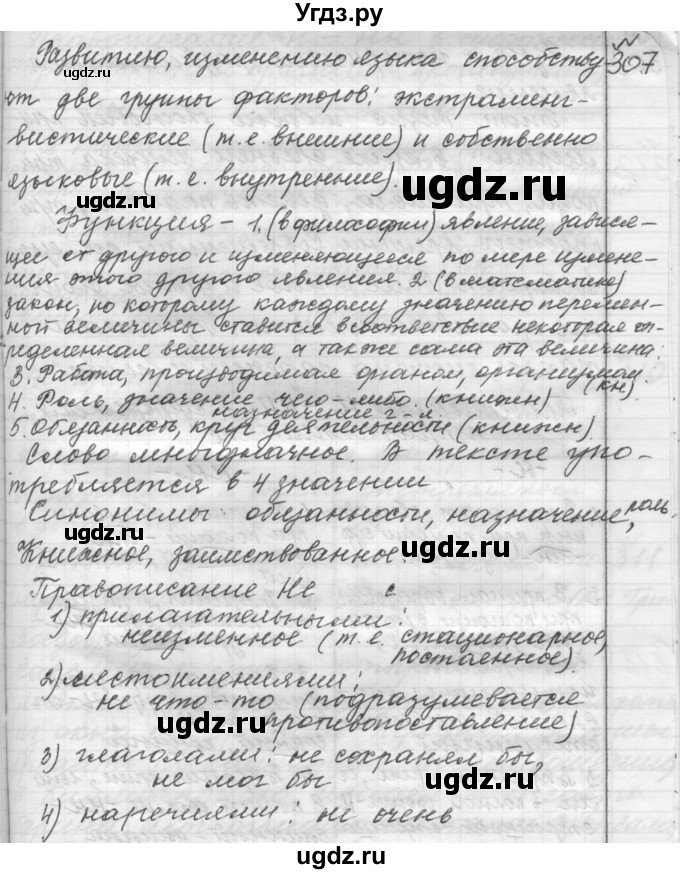 Угдз.ру
Развитию, изменению языка способству- 307
ют две группы факторов: экстралинг-
вистические (т.е. внешние) и собственно
языковые (т.е. внутренние).
ugdz.ru
Функция - 1. (в философии) явление, завися-
щее от другого и изменяющееся по мере измене-
ния этого другого явления. 2 (в математике)
закон, по которому каждому значению перемен-
ной величины ставится в соответствие некоторая оп-
ределенная величина, а также сама эта величина.
3. Работа, производимая органом, организмом.
(кн)
4. Роль, значение чего-либо. (книжн)
назначение ч-л.
5. Обязанность, круг деятельности (книжн)
Слово многозначное. В тексте упо-
требляется в 4 значении
Синонимы: обязанности, назначение, роль.
Книжное, заимствованное.
ugdz.ru
Правописание Не с
1) прилагательными:
неизменное (т.е. стационарное,
постоянное).
2) местоимениями:
не что-то (подразумевается
противопоставление)
ugdz.ru
3) глаголами: не сохранял бы,
не мог бы
ugdz.ru
4) наречиями: не очень
ugdz.ru